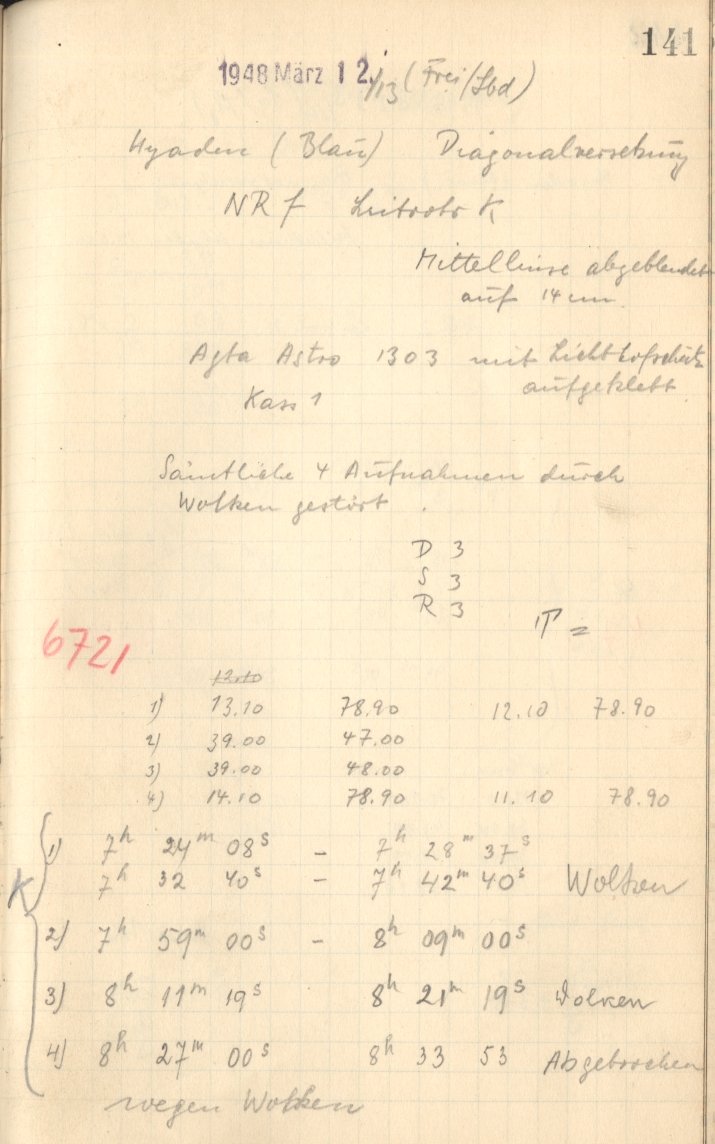 141
1948 März 12./13 (Frei/Sbd)
Hyaden (Blau) Diagonalversetzung
NR f Leitrohr K
Mittellinse abgeblendet
auf 14 cm
Agfa Astro 1303 mit Lichthofschutz
aufgeklebt
Kass 1
Sämtliche 4 Aufnahmen durch
Wolken gestört.
D 3
S 3
R 3
T =
6721
12.10
1) 13.10 78.90 12.10 78.90
2) 39.00 47.00
3) 39.00 48.00
4) 14.10 78.90 11.10 78.90
K
1) 7h 24m 08s – 7h 28m 37s
7h 32 40s – 7h 42m 40s Wolken
2) 7h 59m 00s – 8h 09m 00s
3) 8h 11m 19s 8h 21m 19s Wolken
4) 8h 27m 00s 8h 33 53 Abgebrochen
wegen Wolken